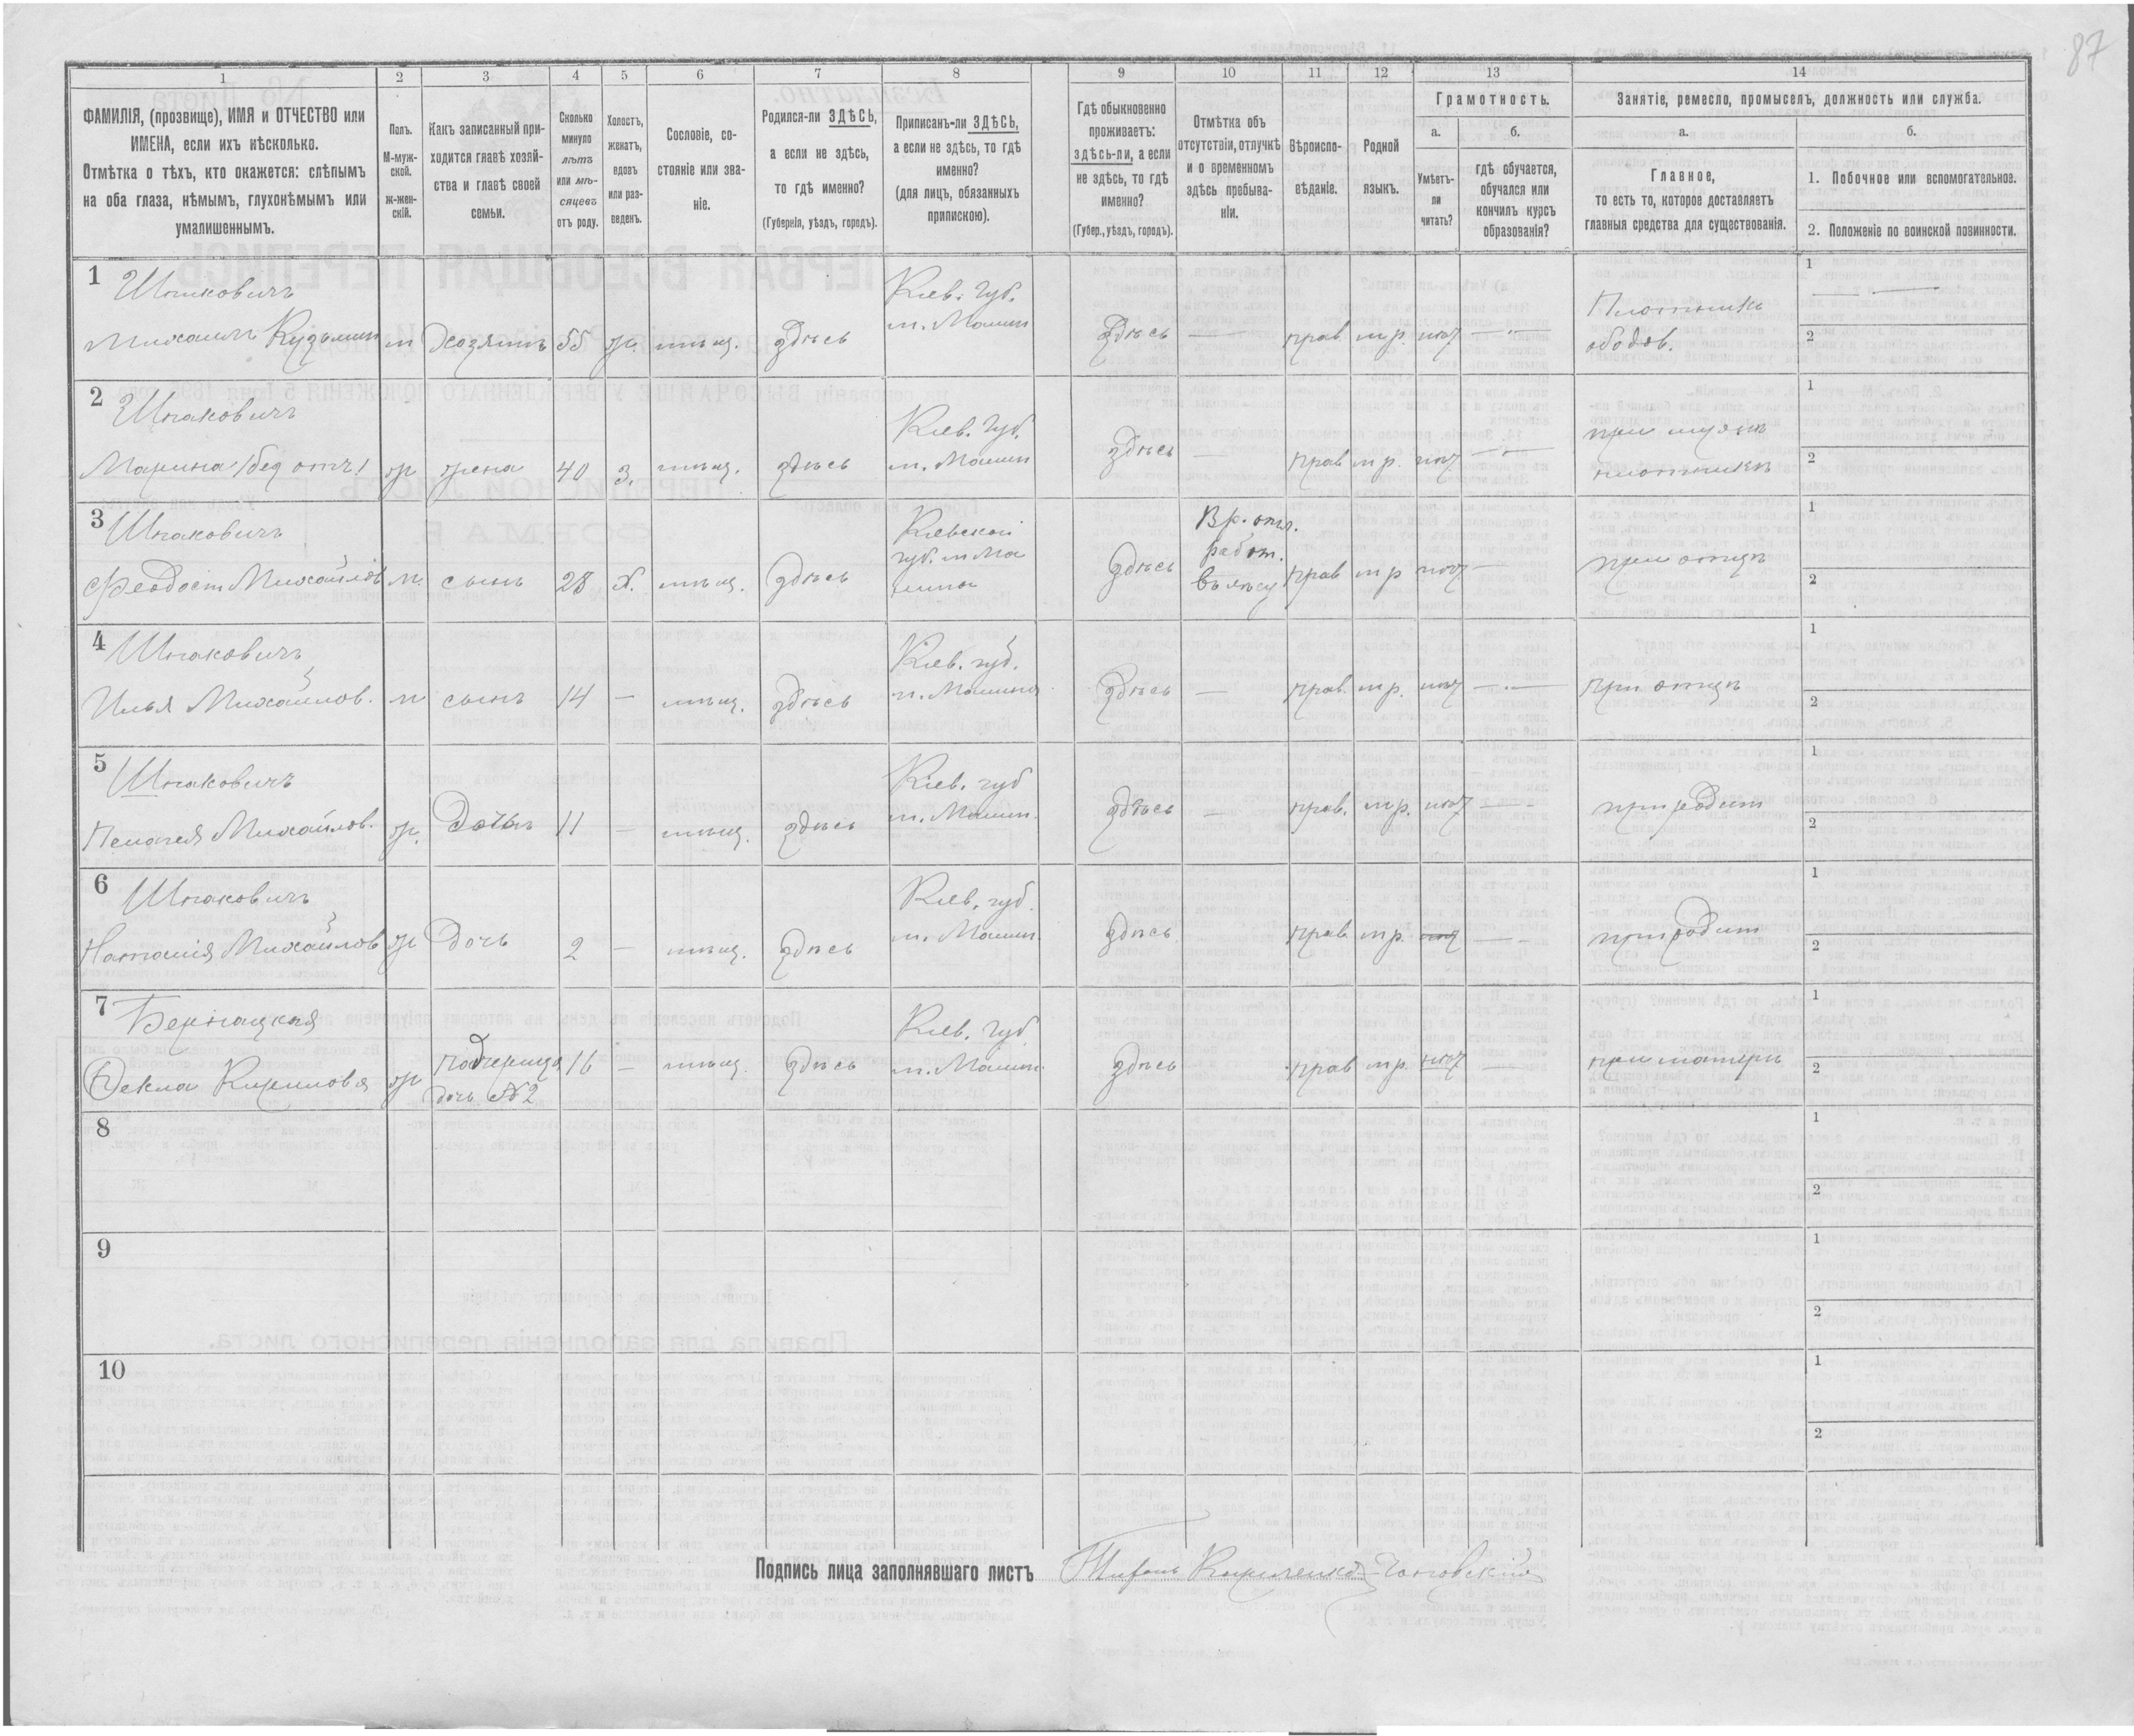 87
1 2 3 4 5 6 7 8 9 10 11 12 13 14
ФАМИЛІЯ, (прозвище), ИМЯ и ОТЧЕСТВО или
ИМЕНА, если ихъ нѣсколько.
Отмѣтка о тѣхъ, кто окажется: слѣпымъ
на оба глаза, нѣмымъ, глухонѣмымъ или
умалишеннымъ.
Полъ.
М-муж-
ской.
ж-жен-
скій.
Какъ записанный при-
ходится главѣ хозяй-
ства и главѣ своей
семьи.
Сколько
минуло
лѣтъ
или мѣ-
сяцевъ
отъ роду.
Холостъ,
женатъ,
вдовъ
или раз-
веденъ.
Сословіе, со-
стояніе или зва-
ніе.
Родился-ли ЗДѢСЬ,
а если не здѣсь,
то гдѣ именно?
(Губернія, уѣздъ, городъ).
Приписанъ-ли ЗДѢСЬ,
а если не здѣсь, то гдѣ
именно?
(для лицъ, обязанныхъ
припискою).
Гдѣ обыкновенно
проживаетъ:
здѣсь-ли, а если
не здѣсь, то гдѣ
именно?
(Губер., уѣздъ, городъ).
Отмѣтка объ
отсутствіи, отлучкѣ
и о временномъ
здѣсь пребыва-
ніи.
Вѣроиспо-
вѣданіе.
Родной
языкъ.
Грамотность.
а.
Умѣетъ-
ли
читать?
б.
гдѣ обучается,
обучался или
кончилъ курсъ
образованія?
Занятіе, ремесло, промыселъ, должность или служба.
а.
Главное,
то есть то, которое доставляетъ
главныя средства для существованія.
б.
1. Побочное или вспомогательное.
2. Положеніе по воинской повинности.
1
Шпаковичъ
Михаилъ Кузьмин
м Хозяинъ 55 ж. мѣщ. здѣсь
Кіев. Губ.
м.
здѣсь — прав. мр. нѣт —
Плотникъ
1
2
2
Шпаковичъ
Марина
ж жена 40 з. мѣщ. здѣсь
Кіев. Губ.
м.
здѣсь — прав мр. нѣт —
при мужѣ
плотникъ
1
2
3
Шпаковичъ
Феодосій Михайлов
м. сынъ 28 х. мѣщ. здѣсь
Кіевской
губ. м.
здѣсь
Вр. отл.
работ.
въ лѣсу
прав мр нѣт —
при отцѣ
1
2
4
Шпаковичъ
Илья Михайлов.
м сынъ 14 — мѣщ. здѣсь
Кіев. губ.
м.
здѣсь — прав. мр. нѣт —
при отцѣ
1
2
5
Шпаковичъ
Пелагея Михайлов.
ж. Дочь 11 — мѣщ. здѣсь
Кіев. губ
м.
здѣсь — прав. мр. нѣт —
при родит
1
2
6
Шпаковичъ
Наталія Михайлов
ж Дочь 2 — мѣщ. здѣсь
Кіев. губ.
м.
здѣсь прав мр. нѣт —
при родит
1
2
7
Бернацкая
Ѳекла Кирилловa
ж Падчерица 16 — мѣщ. здѣсь
дочь №2
Кіев. Губ
м.
здѣсь прав мр. нѣт —
при матери
1
2
8
1
2
9
1
2
10
1
2
Подпись лица заполнявшаго листъ